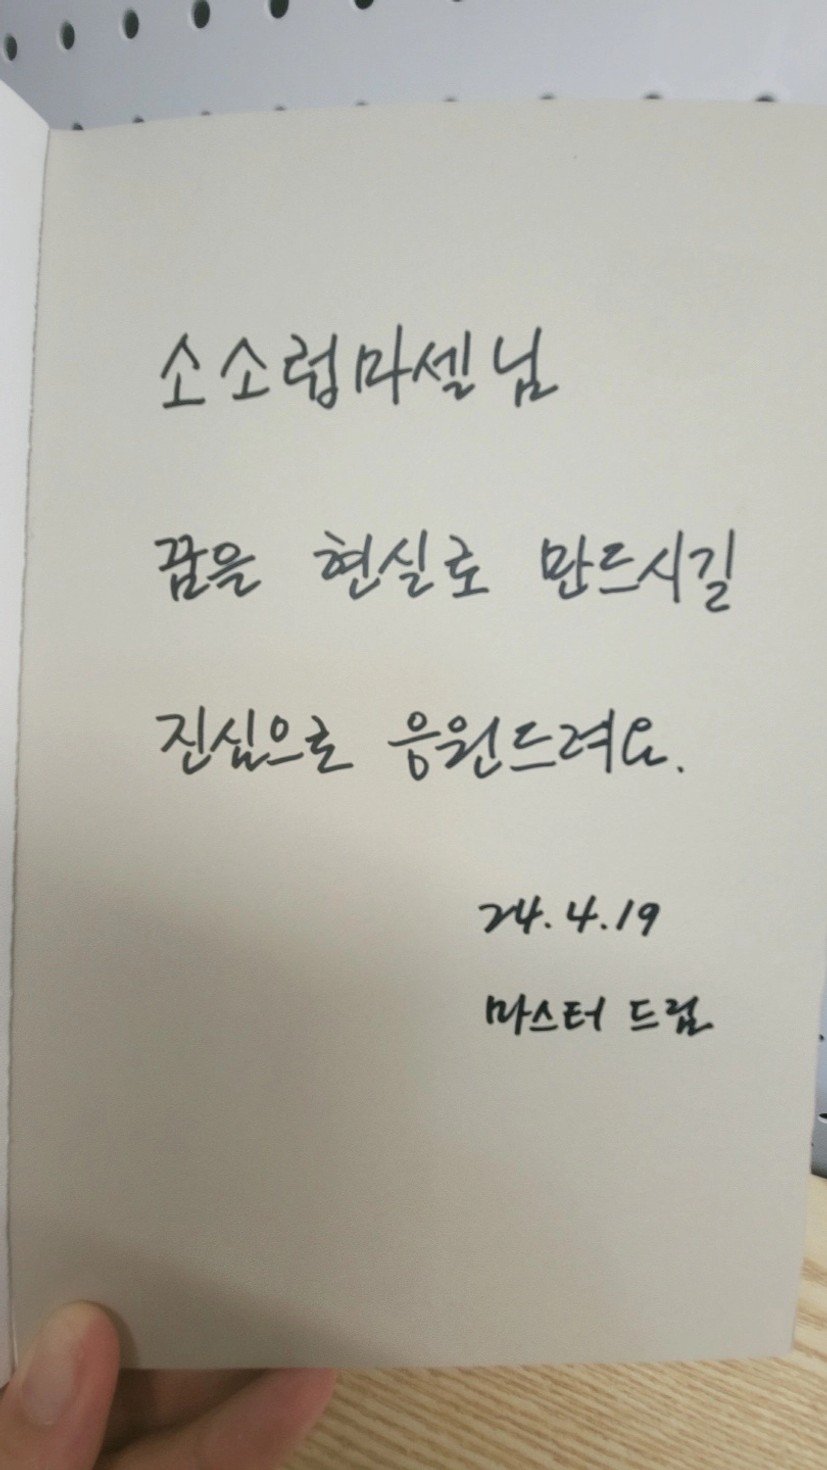 소소럽마셀님
꿈을 현실로 만드시길
진심으로 응원드려요.
24.4.19
마스터 드럼